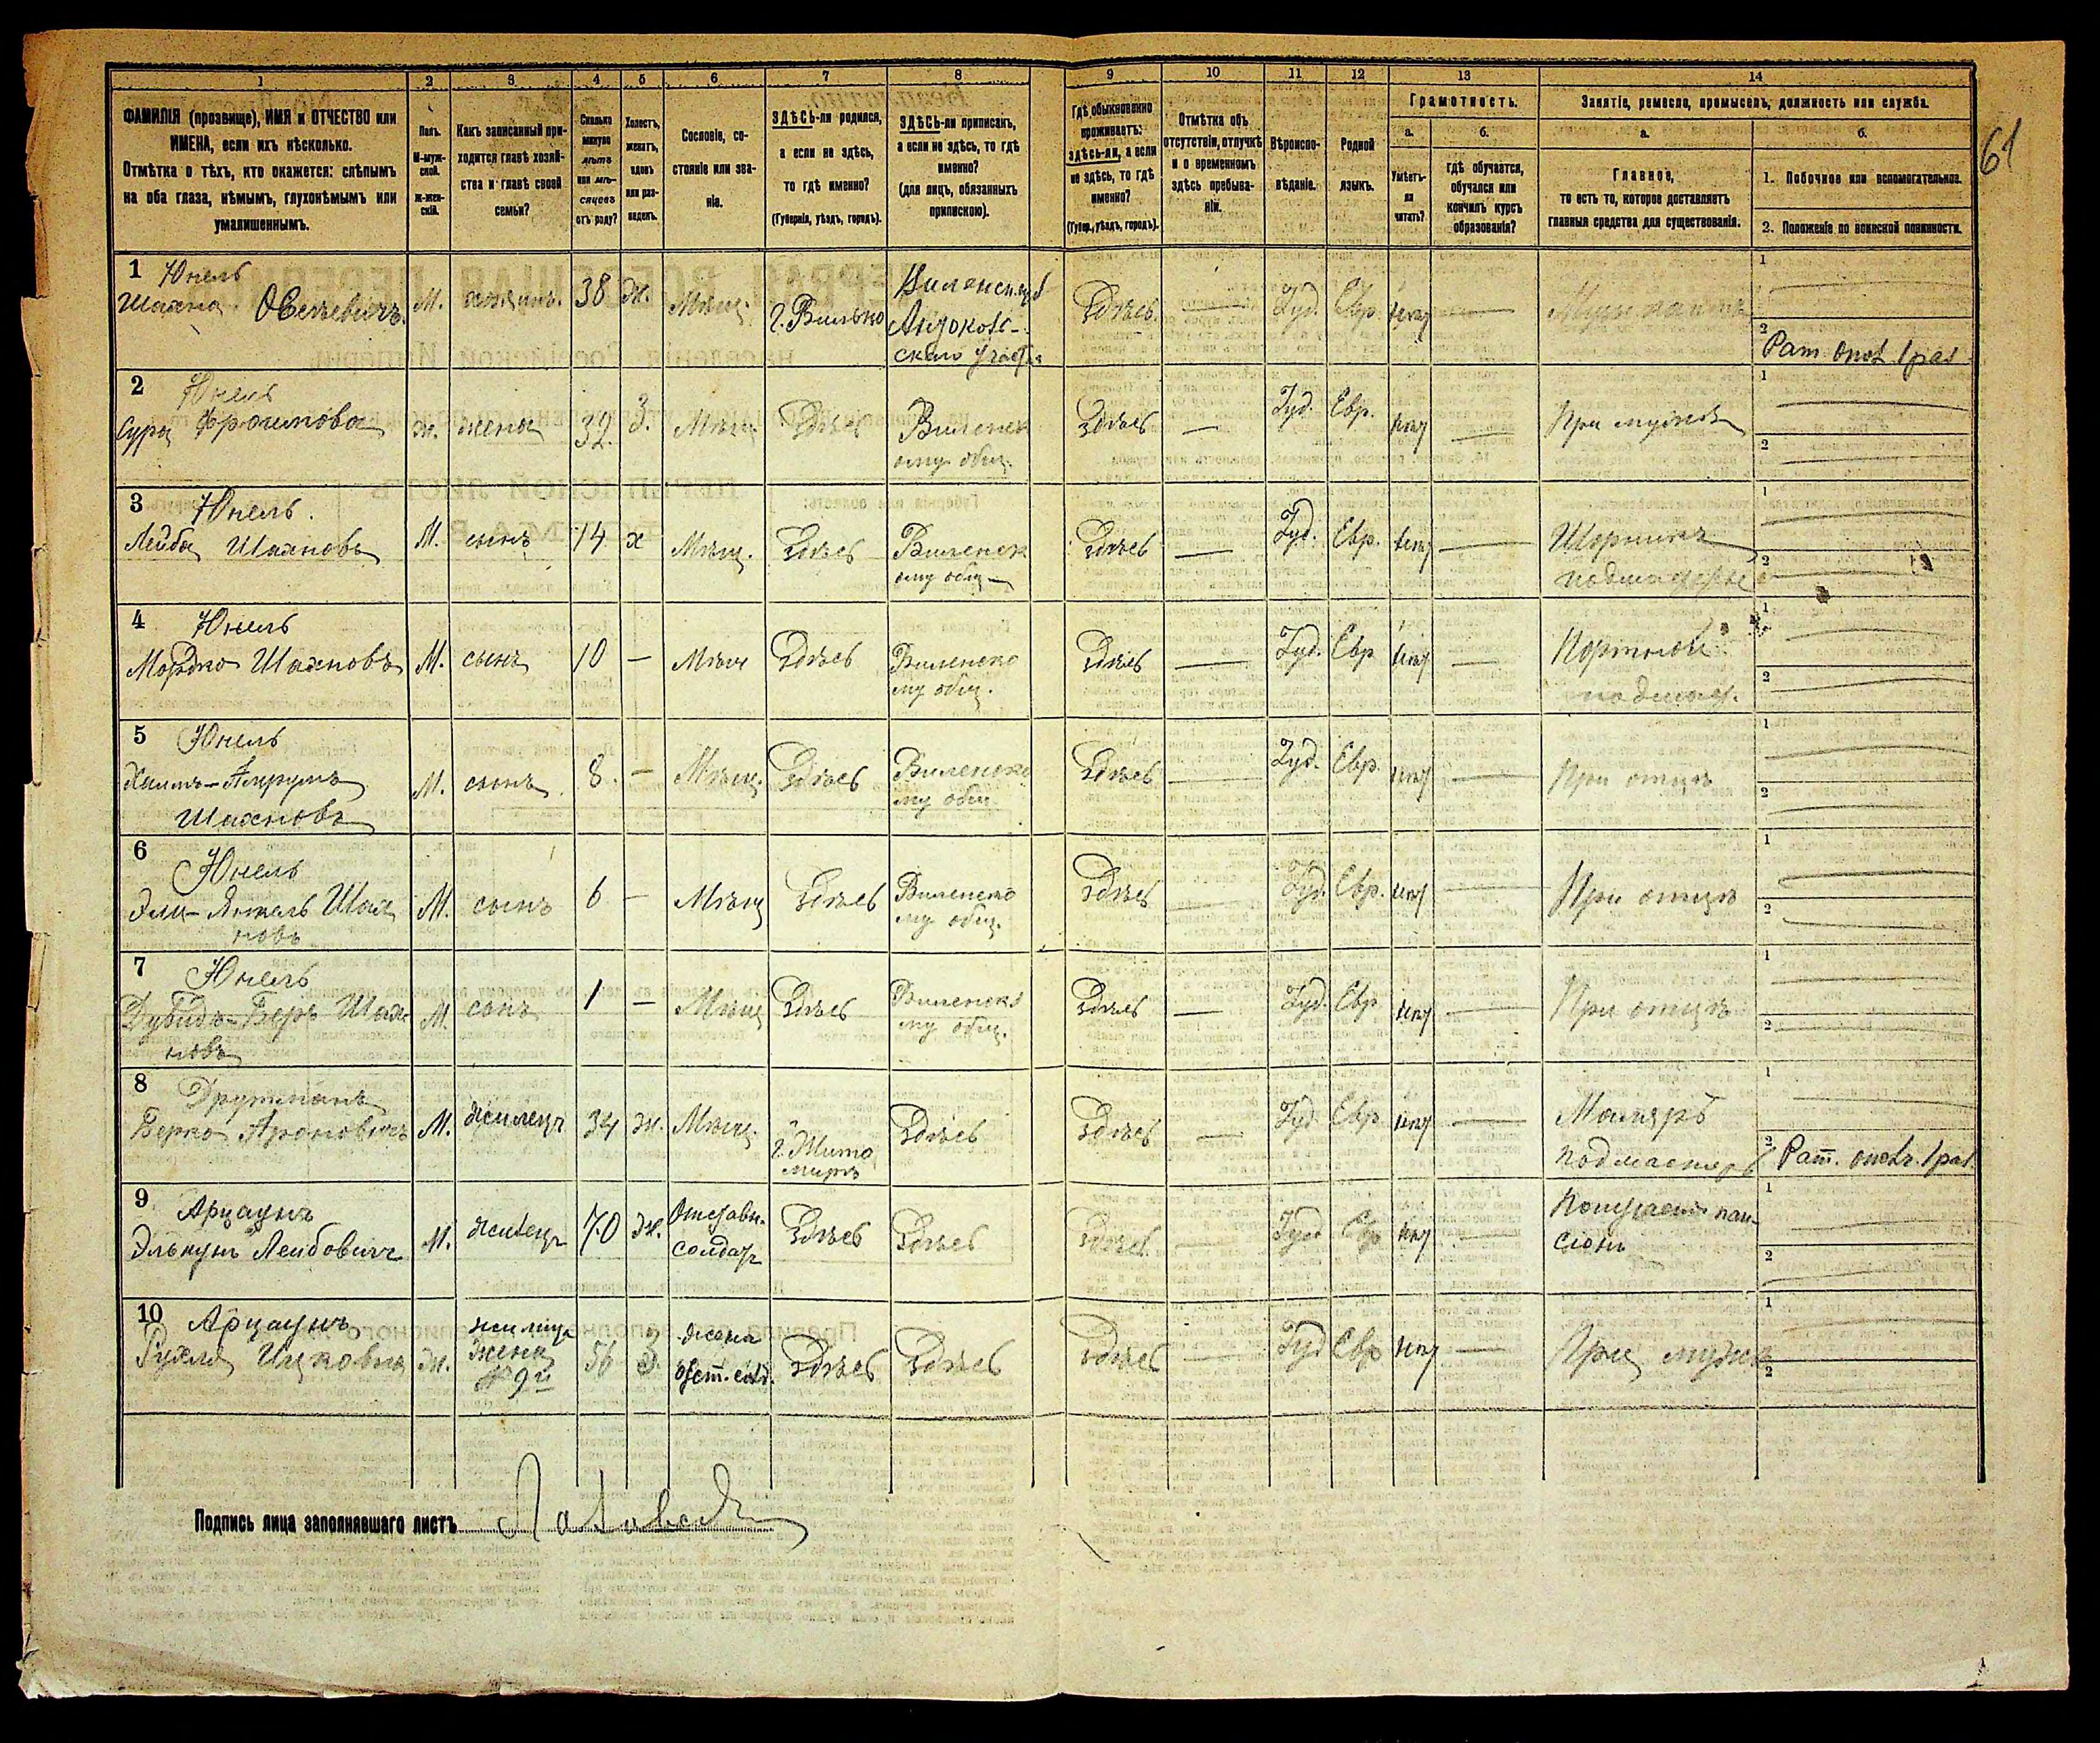 1 2 3 4 5 6 7 8 9 10 11 12 13 14
61
ФАМИЛІЯ (прозвище), ИМЯ и ОТЧЕСТВО или
ИМЕНА, если ихъ нѣсколько.
Отмѣтка о тѣхъ, кто окажется: слѣпымъ
на оба глаза, нѣмымъ, глухонѣмымъ или
умалишеннымъ.
Полъ.
М-муж-
ской.
Ж-жен-
скій.
Какъ записанный при-
ходится главѣ хозяй-
ства и главѣ своей
семьи?
Сколько
минуло
лѣтъ
или мѣ-
сяцевъ
отъ роду?
Холостъ,
женатъ,
вдовъ
или раз-
веденъ.
Сословіе, со-
стояніе или зва-
ніе.
ЗДѢСЬ-ли родился,
а если не здѣсь,
то гдѣ именно?
(Губернія, уѣздъ, городъ).
ЗДѢСЬ-ли приписанъ,
а если не здѣсь, то гдѣ
именно?
(для лицъ, обязанныхъ
припискою).
Гдѣ обыкновенно
проживаетъ:
здѣсь-ли, а если
не здѣсь, то гдѣ
именно?
(Губер., уѣздъ, городъ).
Отмѣтка объ
отсутствіи, отлучкѣ
и о временномъ
здѣсь пребыва-
ніи.
Вѣроиспо-
вѣданіе.
Родной
языкъ.
Грамотность.
а.
Умѣетъ-
ли
читать?
б.
гдѣ обучается,
обучался или
кончилъ курсъ
образованія?
Занятіе, ремесло, промыселъ, должность или служба.
а.
Главное,
то есть то, которое доставляетъ
главныя средства для существованія.
б.
1. Побочное или вспомогательное.
2. Положеніе по воинской повинности.
1 Юнель
Шахна Овсеевичъ М. хозяинъ. 38 ж. Мѣщ. г. Вильно
Здѣсь. — Іуд. Евр. —
1
2
2 Юнель
Сура Фроимова ж. жена 32. З. Мѣщ. Здѣсь Виленск
ому общ.
Здѣсь — Іуд. Евр. — При мужѣ
1
2
3 Юнель
Лейба Шахновъ М. сынъ 14 х Мѣщ. Здѣсь Виленск
ому общ —
Здѣсь — Іуд. Евр. —
1
2
4 Юнель
Мордко Шахновъ М. сынъ 10 — Мѣщ Здѣсь Виленско
му общ.
Здѣсь — Іуд. Евр — Портной
подмаст.
1
2
5 Юнель
Шахновъ
М. сынъ 8. — Мѣщ. Здѣсь Виленско
му общ.
Здѣсь — Іуд. Евр. — При отцѣ
1
2
6 Юнель
Шах
новъ
М. сынъ 6 — Мѣщ Здѣсь Виленско
му общ.
Здѣсь — Іуд. Евр. — При отцѣ
1
2
7 Юнель
Дувидъ-Беръ Шах
новъ
М. сынъ 1 — Мѣщ Здѣсь Виленско
му общ.
Здѣсь — Іуд. Евр — При отцѣ
1
2
8 Друтманъ
Берко Ароновичъ М. жилецъ 34 ж. Мѣщ. г. Жито
миръ
Здѣсь
Здѣсь — Іуд. Евр — Маляръ
подмастерь
1
2
9 Арцаунъ
Элькунъ Лейбовичъ М. жилецъ 70 ж. Отставн.
солдатъ
Здѣсь Здѣсь
Здѣсь — Іуд Евр — Получаетъ пан-
сіонъ
1
2
10 Арцаунъ
Рухля Ицковна ж. жилица
жена
9й
56 З. жена
отст. солд.
Здѣсь Здѣсь
Здѣсь — Іуд Евр — При мужѣ
1
2
Подпись лица заполнявшаго листъ